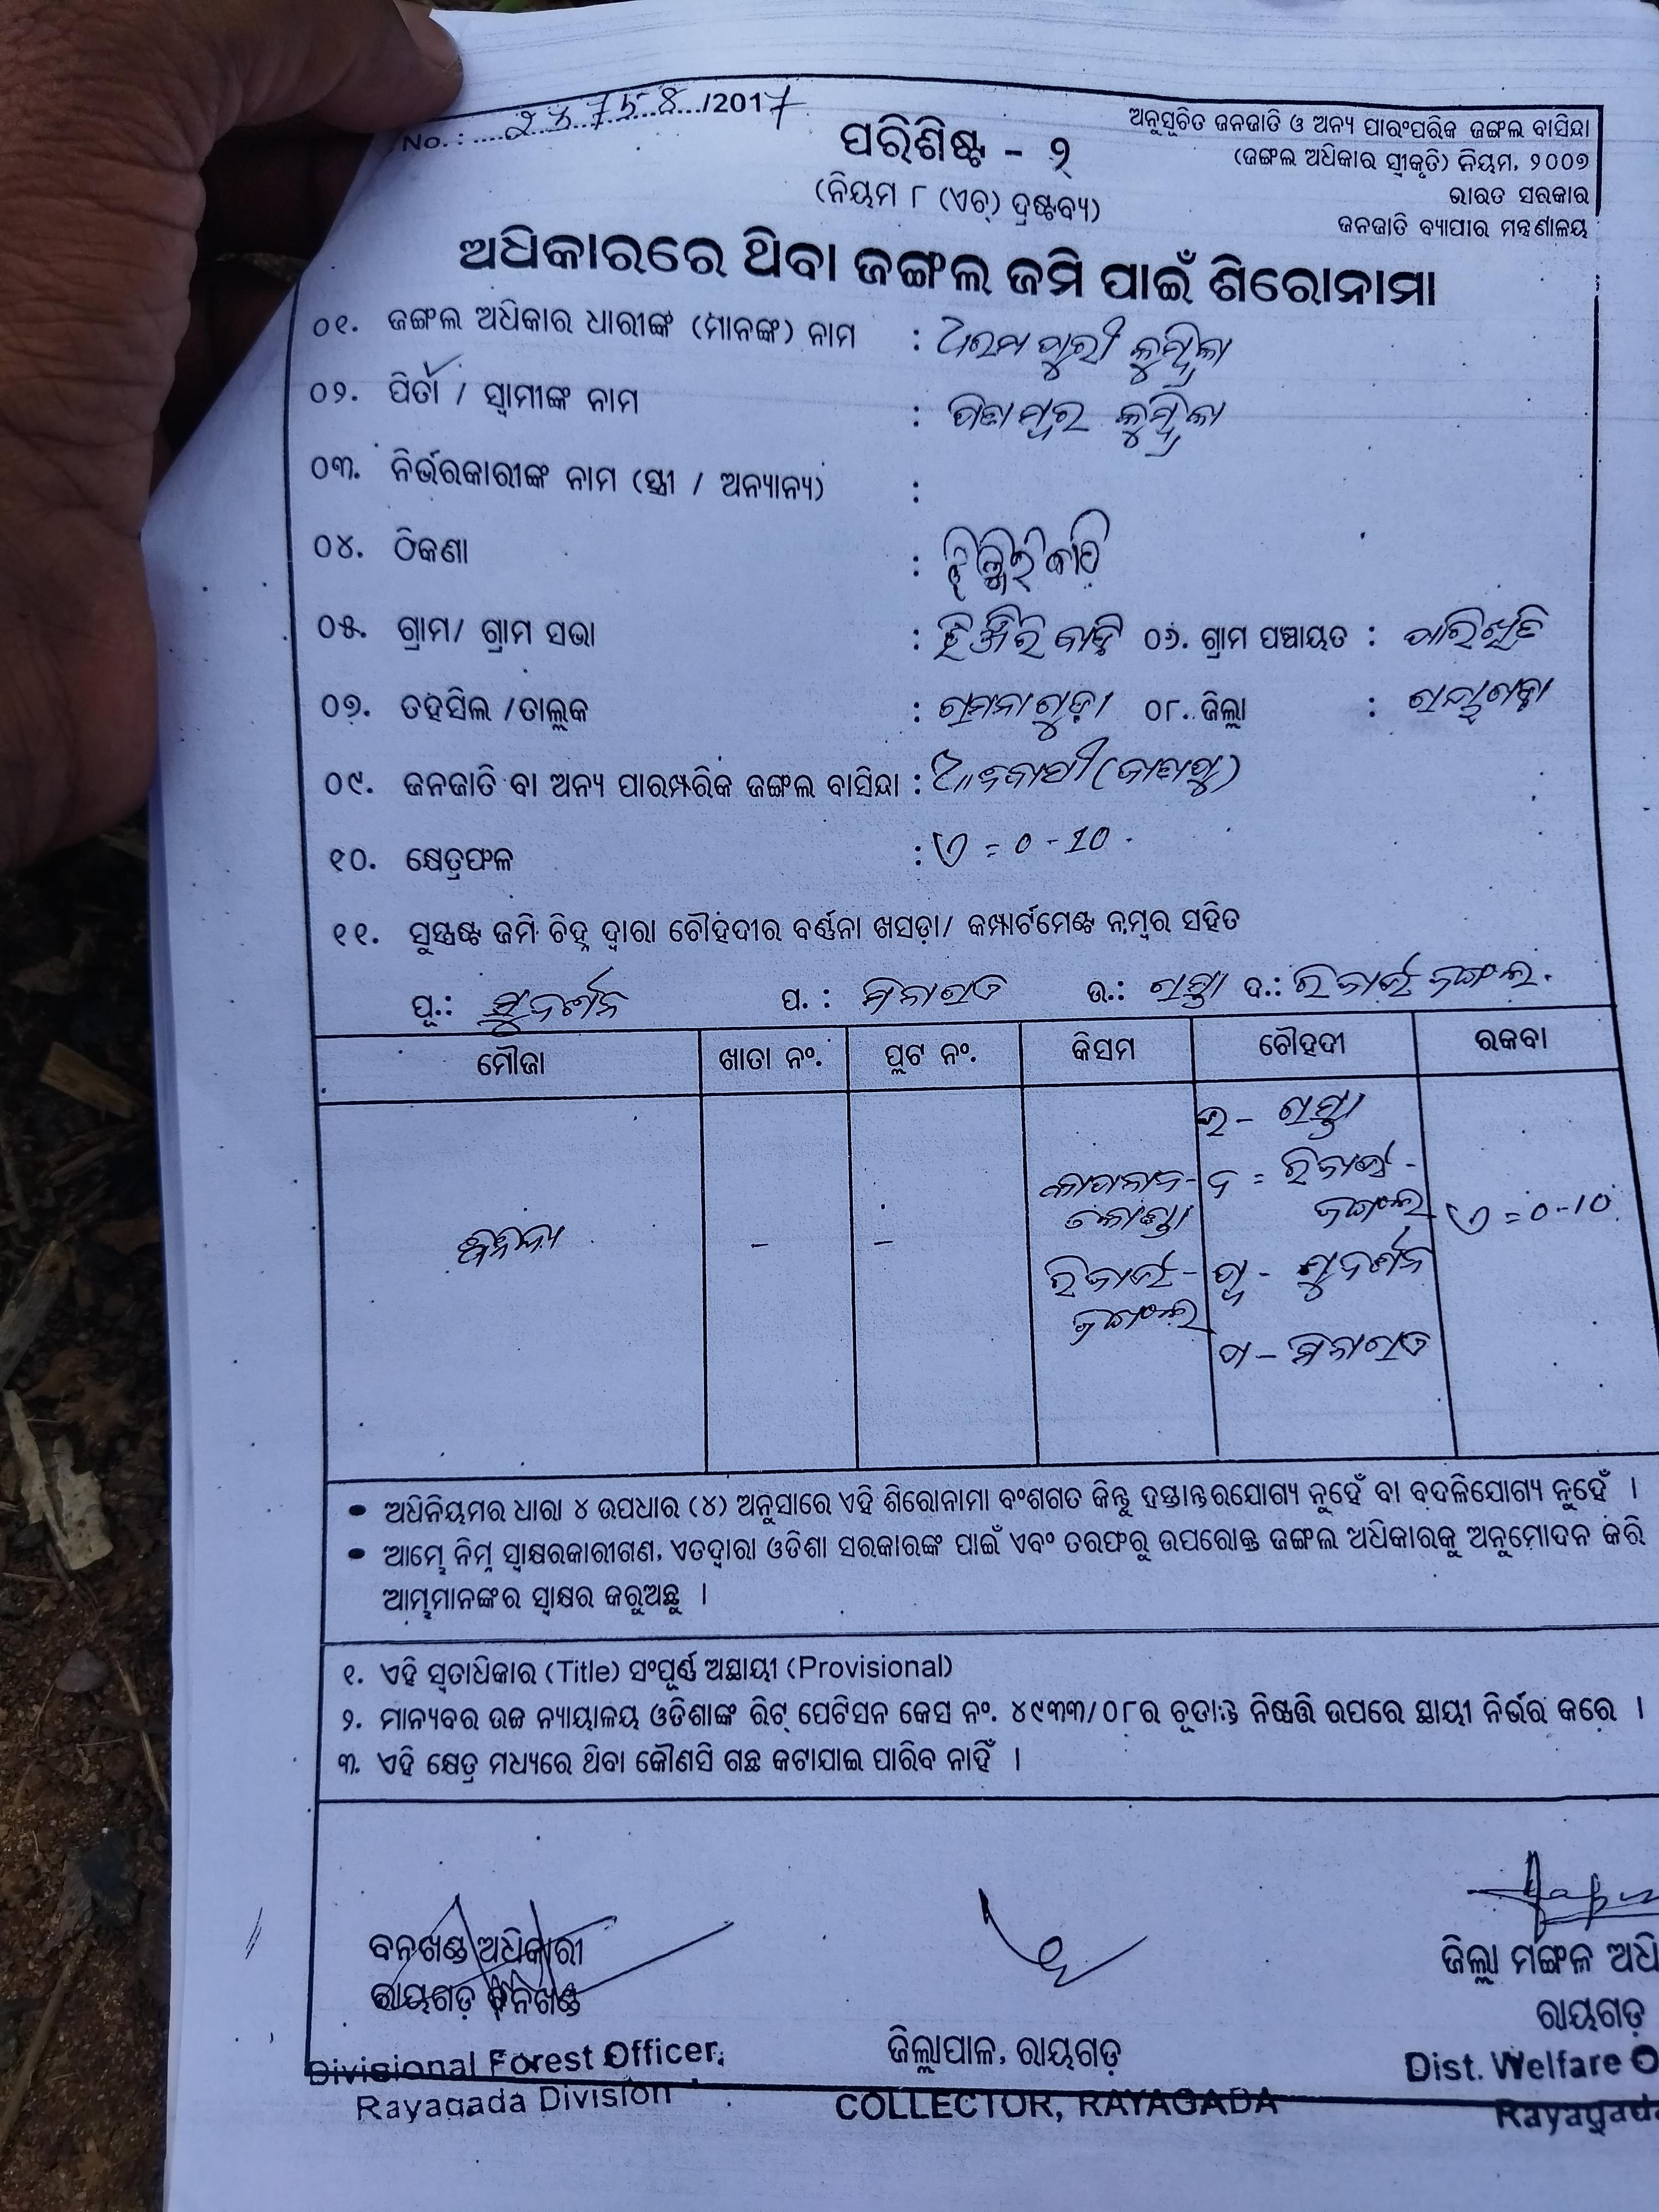 No. : ....23758.../2017
ଅନୁସୂଚିତ ଜନଜାତି ଓ ଅନ୍ୟ ପାରଂପରିକ ଜଙ୍ଗଲ ବାସିନ୍ଦା
(ଜଙ୍ଗଲ ଅଧିକାର ସ୍ୱୀକୃତି) ନିୟମ, ୨୦୦୭
ଭାରତ ସରକାର
ଜନଜାତି ବ୍ୟାପାର ମନ୍ତ୍ରଣାଳୟ
ପରିଶିଷ୍ଟ - ୨
(ନିୟମ ୮ (ଏଚ୍) ଦ୍ରଷ୍ଟବ୍ୟ)
ଅଧିକାରରେ ଥିବା ଜଙ୍ଗଲ ଜମି ପାଇଁ ଶିରୋନାମା
୦୧. ଜଙ୍ଗଲ ଅଧିକାର ଧାରୀଙ୍କ (ମାନଙ୍କ) ନାମ :
୦୨. ପିତା / ସ୍ୱାମୀଙ୍କ ନାମ :
୦୩. ନିର୍ଭରକାରୀଙ୍କ ନାମ (ସ୍ତ୍ରୀ / ଅନ୍ୟାନ୍ୟ) :
୦୪. ଠିକଣା :
୦୫. ଗ୍ରାମ/ ଗ୍ରାମ ସଭା : ୦୬. ଗ୍ରାମ ପଞ୍ଚାୟତ :
୦୭. ତହସିଲ /ତାଲୁକ : ରାମନାଗୁଡ଼ା ୦୮. ଜିଲ୍ଲା : ରାୟଗଡ଼ା
୦୯. ଜନଜାତି ବା ଅନ୍ୟ ପାରମ୍ପରିକ ଜଙ୍ଗଲ ବାସିନ୍ଦା : ଆଦିବାସୀ (ଜାତାପୁ)
୧୦. କ୍ଷେତ୍ରଫଳ : ଏ = 0 - 10
୧୧. ସୁସ୍ପଷ୍ଟ ଜମି ଚିହ୍ନ ଦ୍ୱାରା ଚୌହଦୀର ବର୍ଣ୍ଣନା ଖସଡ଼ା/ କମ୍ପାର୍ଟମେଣ୍ଟ ନମ୍ବର ସହିତ
ପୂ.: ସୁଦର୍ଶନ ପ. : ଉ.: ରାସ୍ତା ଦ.: ରିଜର୍ଭ ଜଙ୍ଗଲ.
ମୌଜା ଖାତା ନଂ. ପ୍ଲଟ ନଂ. କିସମ ଚୌହଦୀ ରକବା
ଉ - ରାସ୍ତା
- - ରିଜର୍ଭ - ଜଙ୍ଗଲ ଦ = ରିଜର୍ଭ - ଜଙ୍ଗଲ ଏ = 0-10
ପୂ - ସୁଦର୍ଶନ
ପ -
• ଅଧିନିୟମର ଧାରା ୪ ଉପଧାର (୪) ଅନୁସାରେ ଏହି ଶିରୋନାମା ବଂଶଗତ କିନ୍ତୁ ହସ୍ତାନ୍ତରଯୋଗ୍ୟ ନୁହେଁ ବା ବଦଳିଯୋଗ୍ୟ ନୁହେଁ ।
• ଆମ୍ଭେ ନିମ୍ନ ସ୍ୱାକ୍ଷରକାରୀଗଣ, ଏତଦ୍ୱାରା ଓଡିଶା ସରକାରଙ୍କ ପାଇଁ ଏବଂ ତରଫରୁ ଉପରୋକ୍ତ ଜଙ୍ଗଲ ଅଧିକାରକୁ ଅନୁମୋଦନ କରି
ଆମ୍ଭମାନଙ୍କର ସ୍ୱାକ୍ଷର କରୁଅଛୁ ।
୧. ଏହି ସ୍ୱତାଧିକାର (Title) ସଂପୂର୍ଣ୍ଣ ଅସ୍ଥାୟୀ (Provisional)
୨. ମାନ୍ୟବର ଉଚ୍ଚ ନ୍ୟାୟାଳୟ ଓଡିଶାଙ୍କ ରିଟ୍ ପେଟିସନ କେସ ନଂ. ୪୯୩୩/୦୮ର ଚୂଡାନ୍ତ ନିଷ୍ପତ୍ତି ଉପରେ ସ୍ଥାୟୀ ନିର୍ଭର କରେ ।
୩. ଏହି କ୍ଷେତ୍ର ମଧ୍ୟରେ ଥିବା କୌଣସି ଗଛ କଟାଯାଇ ପାରିବ ନାହିଁ ।
ବନଖଣ୍ଡ ଅଧିକାରୀ
ରାୟଗଡ଼ ବନଖଣ୍ଡ
Divisional Forest Officer,
Rayagada Division
ଜିଲ୍ଲାପାଳ, ରାୟଗଡ଼
COLLECTOR, RAYAGADA
ଜିଲ୍ଲା ମଙ୍ଗଳ ଅଧି
ରାୟଗଡ଼
Dist. Welfare O
Rayagada